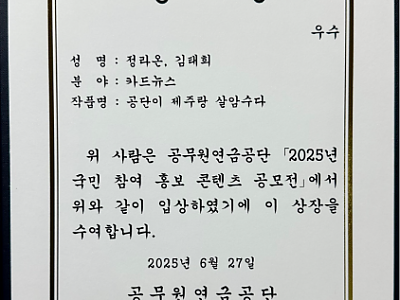 우수
성 명 : 정라온, 김태희
분 야 : 카드뉴스
작품명 : 공단이 제주랑 살암수다
위 사람은 공무원연금공단 「2025년
국민 참여 홍보 콘텐츠 공모전」에서
위와 같이 입상하였기에 이 상장을
수여합니다.
2025년 6월 27일
공무원연금공단